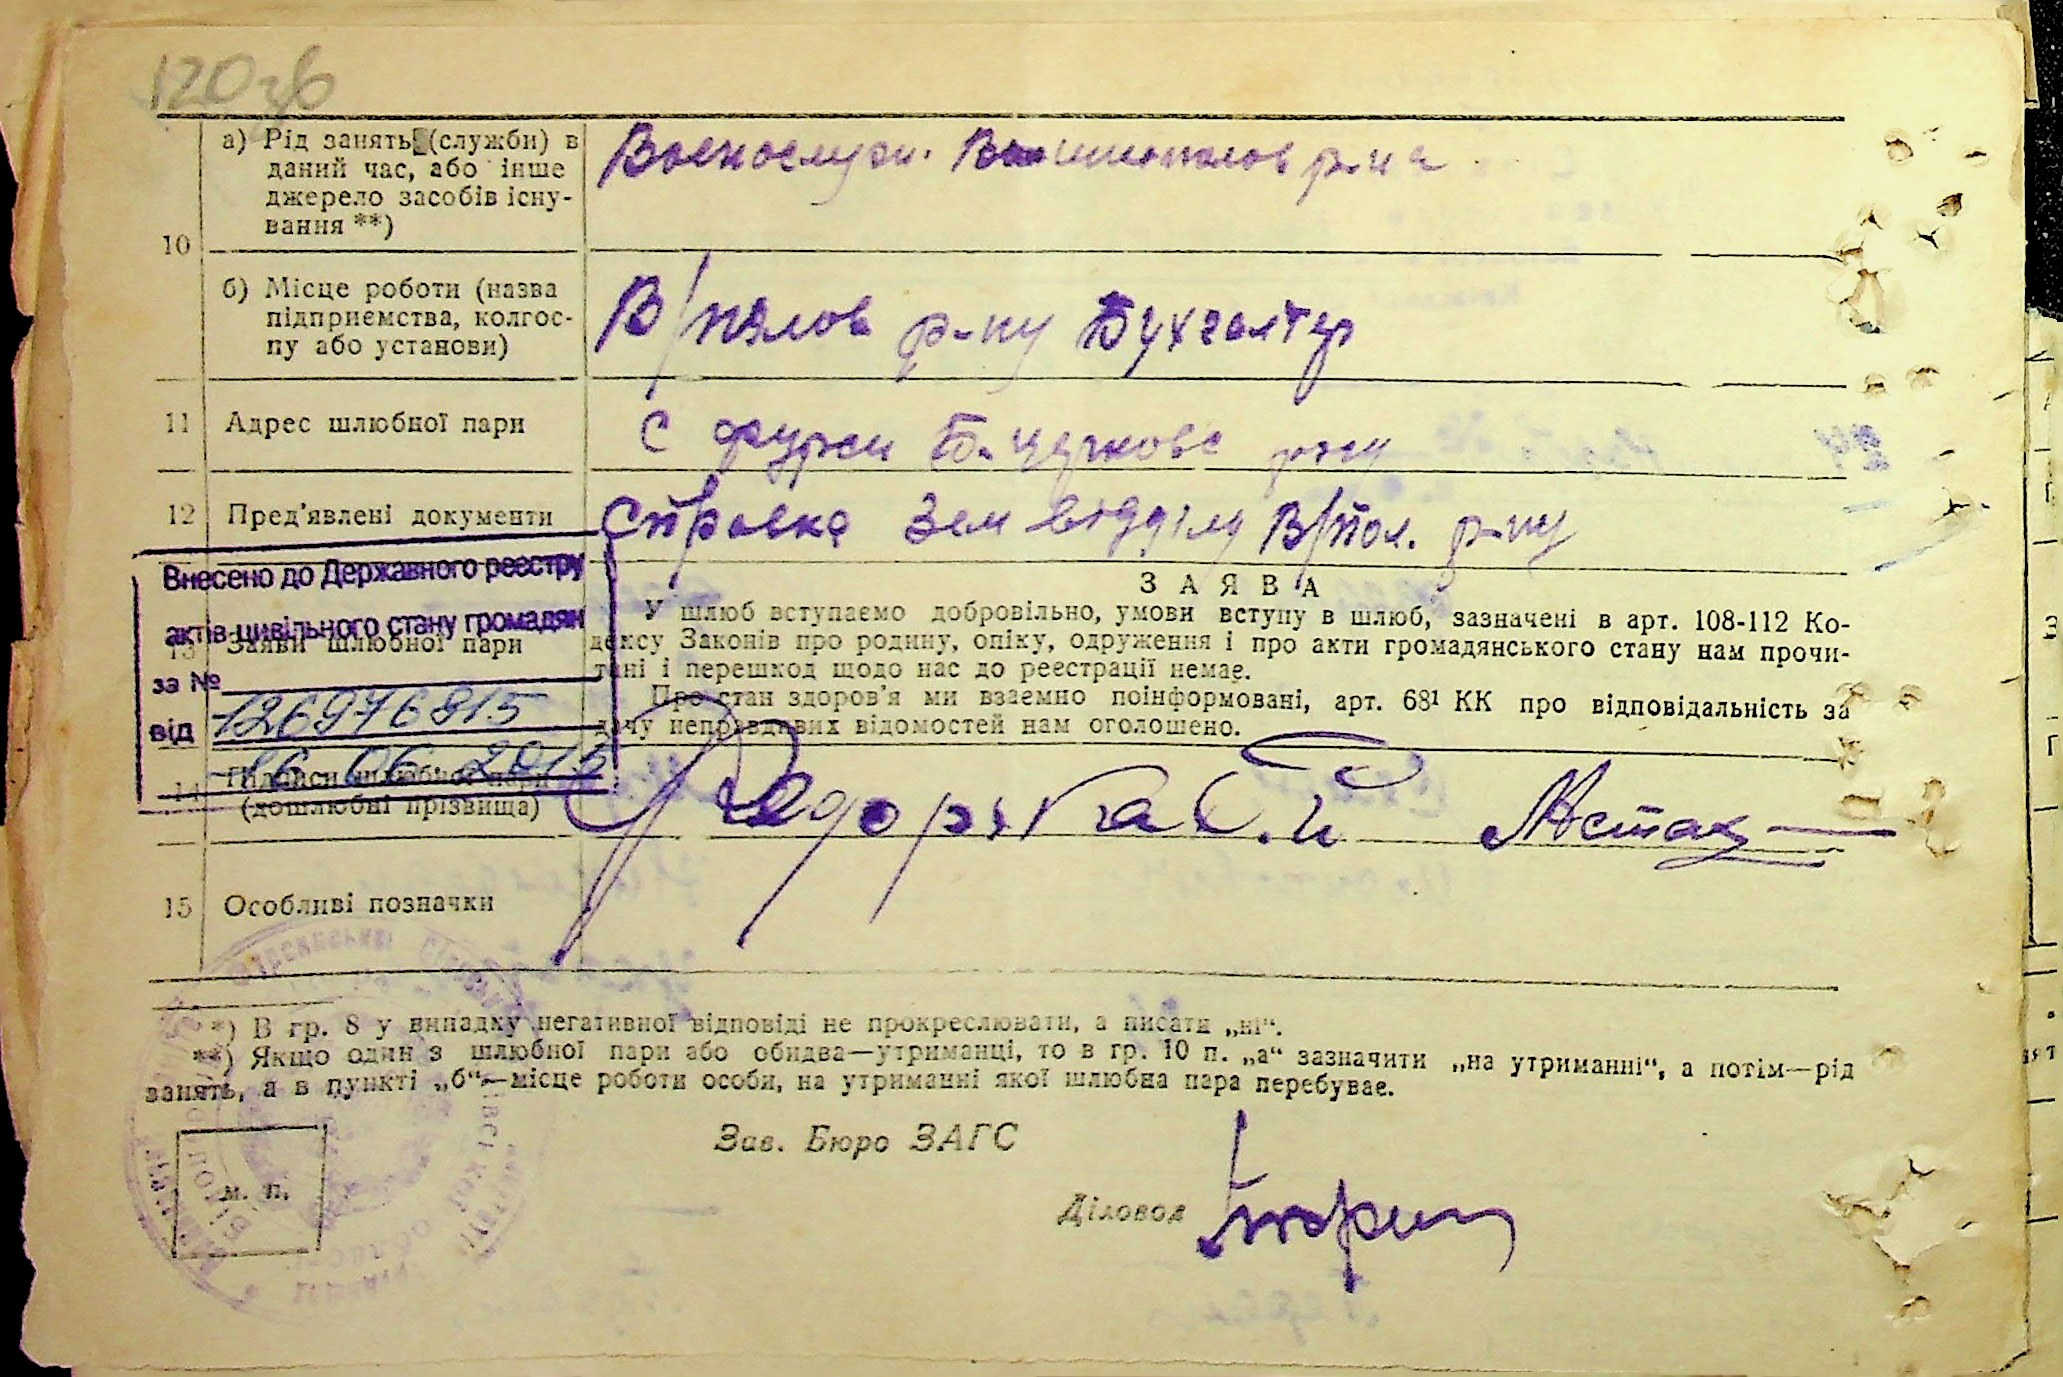 120зв
10
а) Рід занять (служби) в
даний час, або інше
джерело засобів існу-
вання **)
Военослуж.
б) Місце роботи (назва
підприємства, колгос-
пу або установи)
В/Полов р-ну Бухгалтер
11 Адрес шлюбної пари
С Фурси Б. Церковс р-ну
12 Пред'явлені документи
Справка Зем відділу В/Пол. р-ну
Внесено до Державного реєстру
актів цивільного стану громадян
за №
126976815
від
16.06.2015
13 Заяви шлюбної пари
ЗАЯВА
У шлюб вступаємо добровільно, умови вступу в шлюб, зазначені в арт. 108-112 Ко-
дексу Законів про родину, опіку, одруження і про акти громадянського стану нам прочи-
тані і перешкод щодо нас до реєстрації немає.
Про стан здоров'я ми взаємно поінформовані, арт. 68¹ КК про відповідальність за
дачу неправдивих відомостей нам оголошено.
14 Підписи шлюбної пари
(дошлюбні прізвища)
15 Особливі позначки
*) В гр. 8 у випадку негативної відповіді не прокреслювати, а писати „ні“.
**) Якщо один з шлюбної пари або обидва—утриманці, то в гр. 10 п. „а“ зазначити „на утриманні“, а потім—рід
занять, а в пункті „б“—місце роботи особи, на утриманні якої шлюбна пара перебуває.
Зав. Бюро ЗАГС
м. п.
Діловод